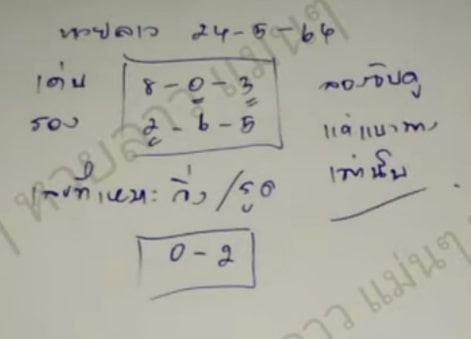 หวยลาว 24-5-64
เด่น 8-0-3 ลองจับดู
รอง 2-6-5 แค่แนวทาง
เท่านั้น
เลขที่เหมาะ วิ่ง/รูด
0-2
หวยลาว แม่นๆ